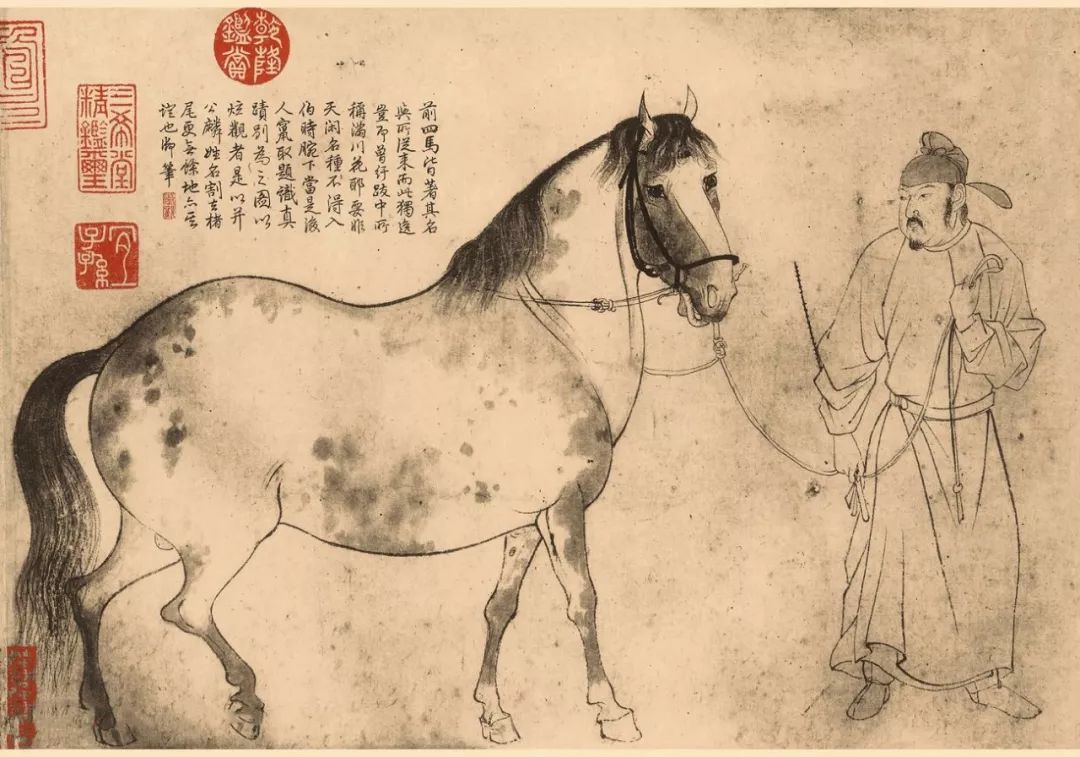 乾隆鑑賞
三希堂精鑑璽
宜子孫
前四馬皆著其名
與所從來而此獨逸
豈即曾紆跋中所
稱滿川花耶要非
天閑名種不得入
伯時腕下當是後
人竄取題識真
蹟別為之圖以
炫觀者是以并
公麟姓名割去楮
尾更無餘地亦
證也御筆